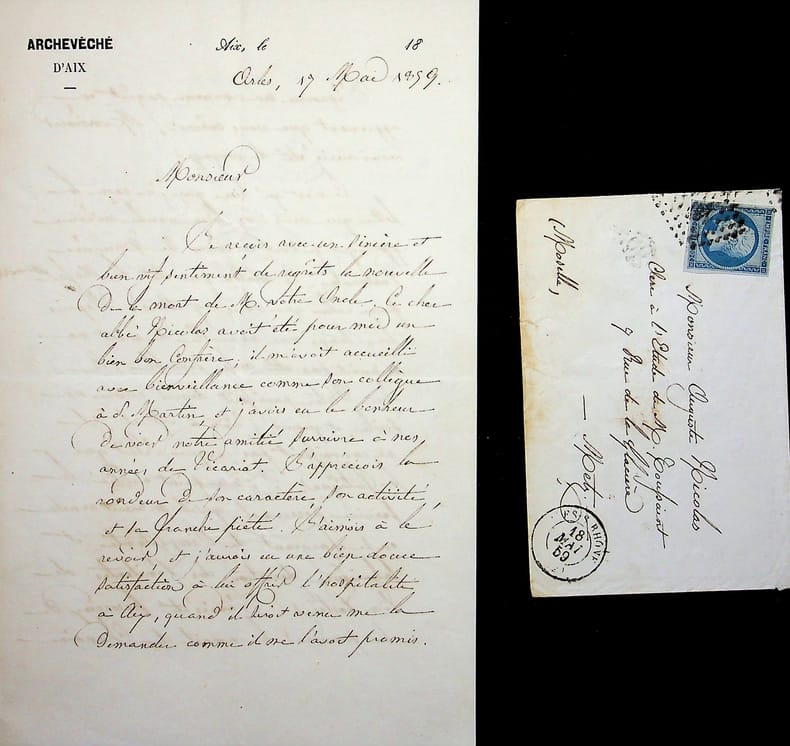 ARCHEVÊCHÉ
D'AIX
Aix, le 18
Arles, 17 Mai 1859.
Monsieur
Je reçois avec un sincère et
bien vif sentiment de regrets la nouvelle
de la mort de M. votre Oncle, Ce cher
abbé Nicolas avoit été pour moi un
bien bon Confrère, il m'avoit accueilli
avec bienveillance comme son collègue
à St. Martin, et j'avois eu le bonheur
de voir notre amitié survivre à nos
années de Vicariat. J'appréciois la
rondeur de son caractère, son activité
et sa franche piété. J'aimois à le
revoir, et j'aurois eu une bien douce
satisfaction à lui offrir l'hospitalité
à Aix, quand il seroit venu me la
demander comme il me l'avoit promis.
Monsieur Auguste Nicolas
Clerc à l'Etude de M.
9 Rue de la
Metz
(Moselle)
18
MAI
59